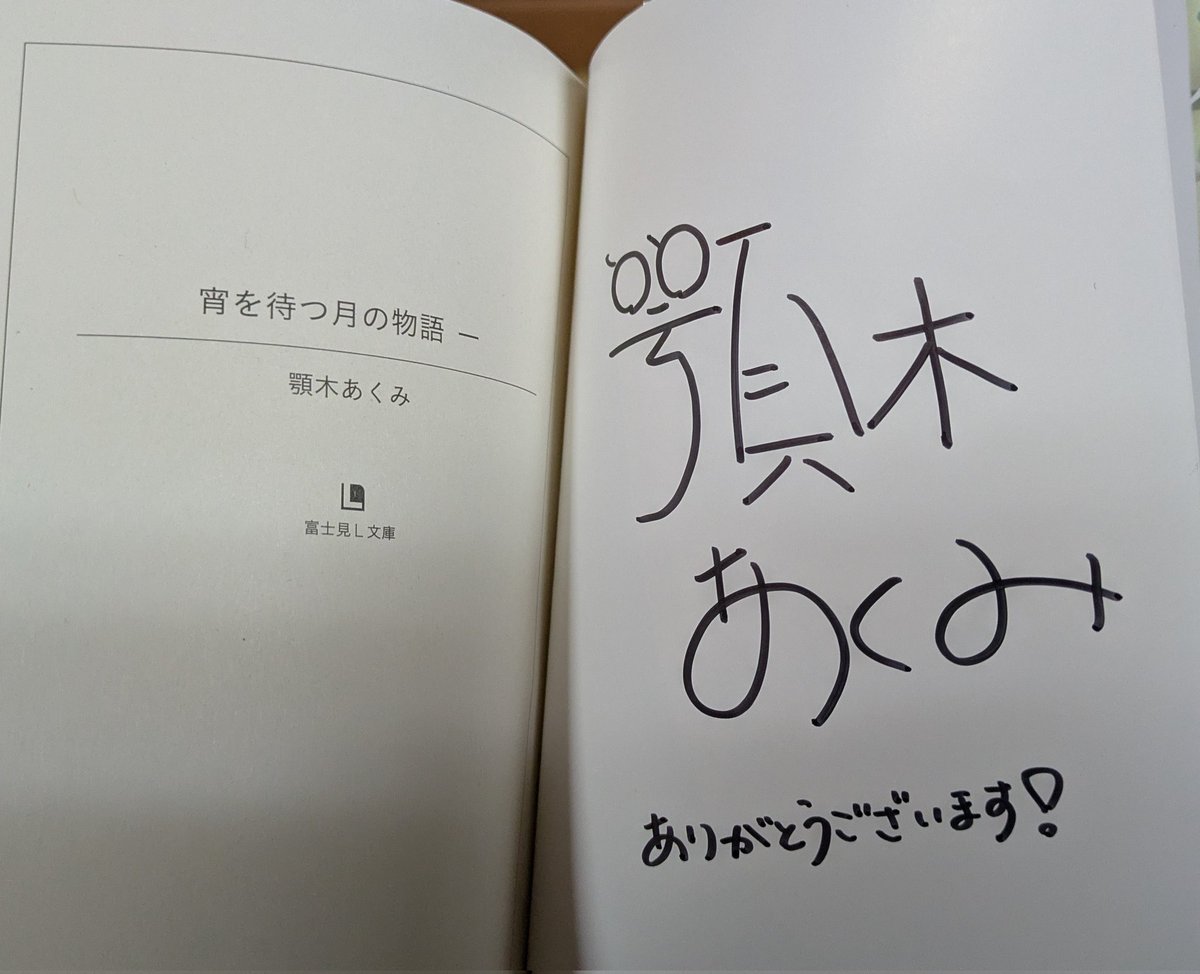 宵を待つ月の物語 一
顎木あくみ
富士見L文庫
顎木
あくみ
ありがとうございます!